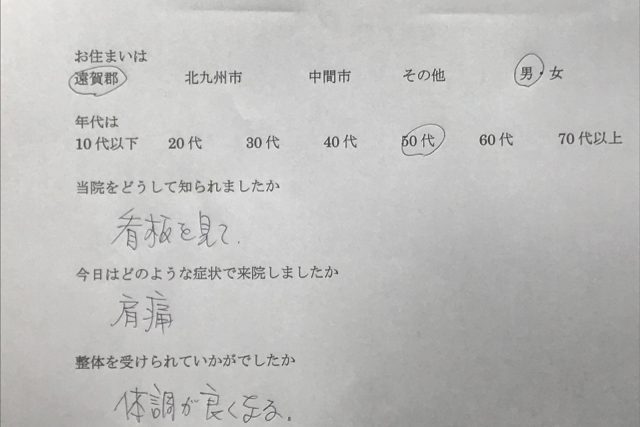 お住まいは
遠賀郡 北九州市 中間市 その他 男・女
年代は
10代以下 20代 30代 40代 50代 60代 70代以上
当院をどうして知られましたか
看板を見て.
今日はどのような症状で来院しましたか
肩痛
整体を受けられていかがでしたか
体調が良くなる.